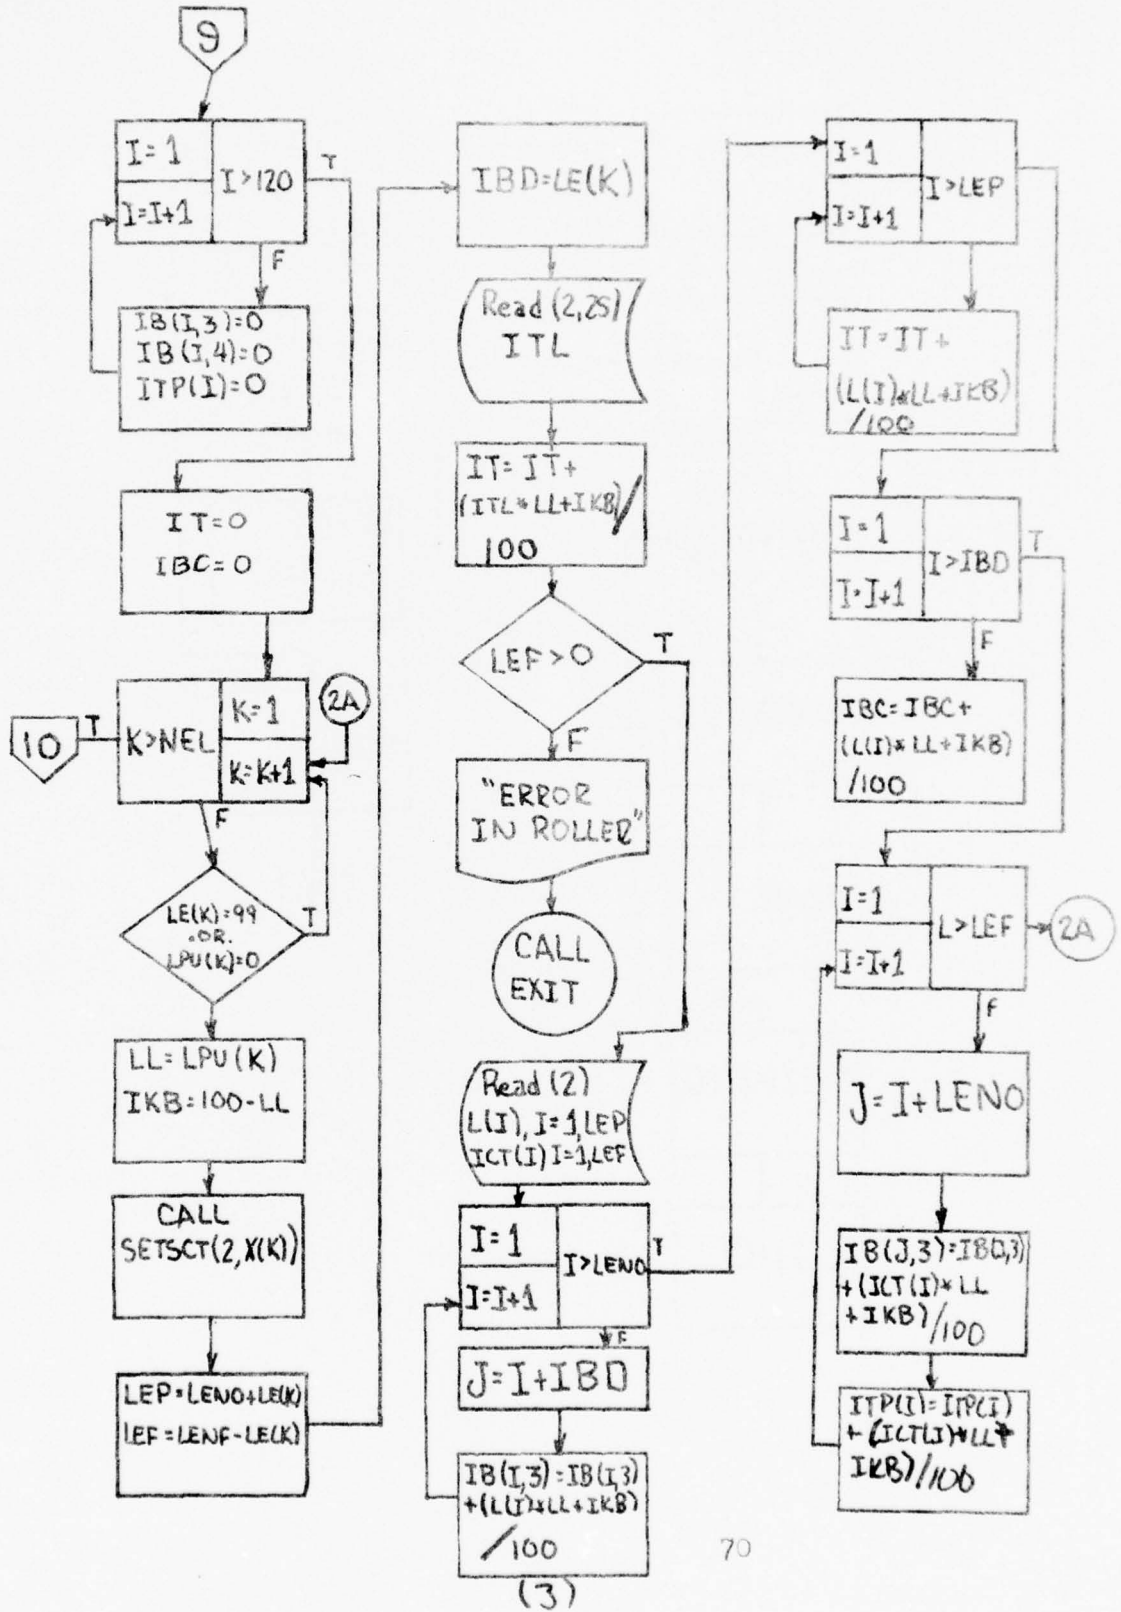 9
I=1
I=I+1
I>120
T
F
IB(I,3)=0
IB(I,4)=0
ITP(I)=0
IT=0
IBC=0
10
T
K>NEL
K=1
K=K+1
2A
F
LE(K)=99
.OR.
LPU(K)=0
T
LL=LPU(K)
IKB=100-LL
CALL
SETSCT(2,X(K))
LEP=LENO+LE(K)
LEF=LENF-LE(K)
IBD=LE(K)
Read (2,25)
ITL
IT=IT+
(ITL*LL+IKB)/
100
LEF>0
T
F
"ERROR
IN ROLLER"
CALL
EXIT
Read (2)
L(I), I=1,LEP
ICT(I) I=1,LEF
I=1
I=I+1
I>LENO
T
F
J=I+IBD
IB(I,3)=IB(I,3)
+(L(I)*LL+IKB)
/100
(3)
I=1
I=I+1
I>LEP
IT=IT+
(L(I)*LL+IKB)
/100
I=1
I=I+1
I>IBD
T
F
IBC=IBC+
(L(I)*LL+IKB)
/100
I=1
I=I+1
L>LEF
2A
F
J=I+LENO
IB(J,3)=IB(J,3)
+(ICT(I)*LL
+IKB)/100
ITP(I)=ITP(I)
+(ICT(I)*LL+
IKB)/100
70